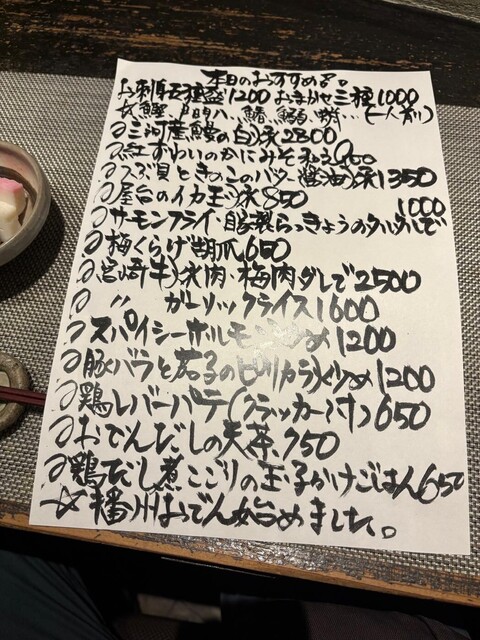 本日のおすすめ。
お刺身五種盛1200 おまかせ三種1000
(一人前)
三河産鰻の白焼2800
紅ずわいのかにみそ
つぶ貝ときのこのバター醤油焼1350
屋台のイカ玉焼850
1000
サーモンフライ・自家製らっきょうのタルタルで
梅くらげ胡瓜650
宮崎牛焼肉・梅肉ダレで2500
〃 ガーリックライス1600
スパイシーホルモン炒め1200
豚バラと茄子のピリカラ炒め1200
鶏レバーパテ(クラッカー付)650
おでんだしの天茶750
鶏だし煮こごりの玉子かけごはん650
☆播州おでん始めました。